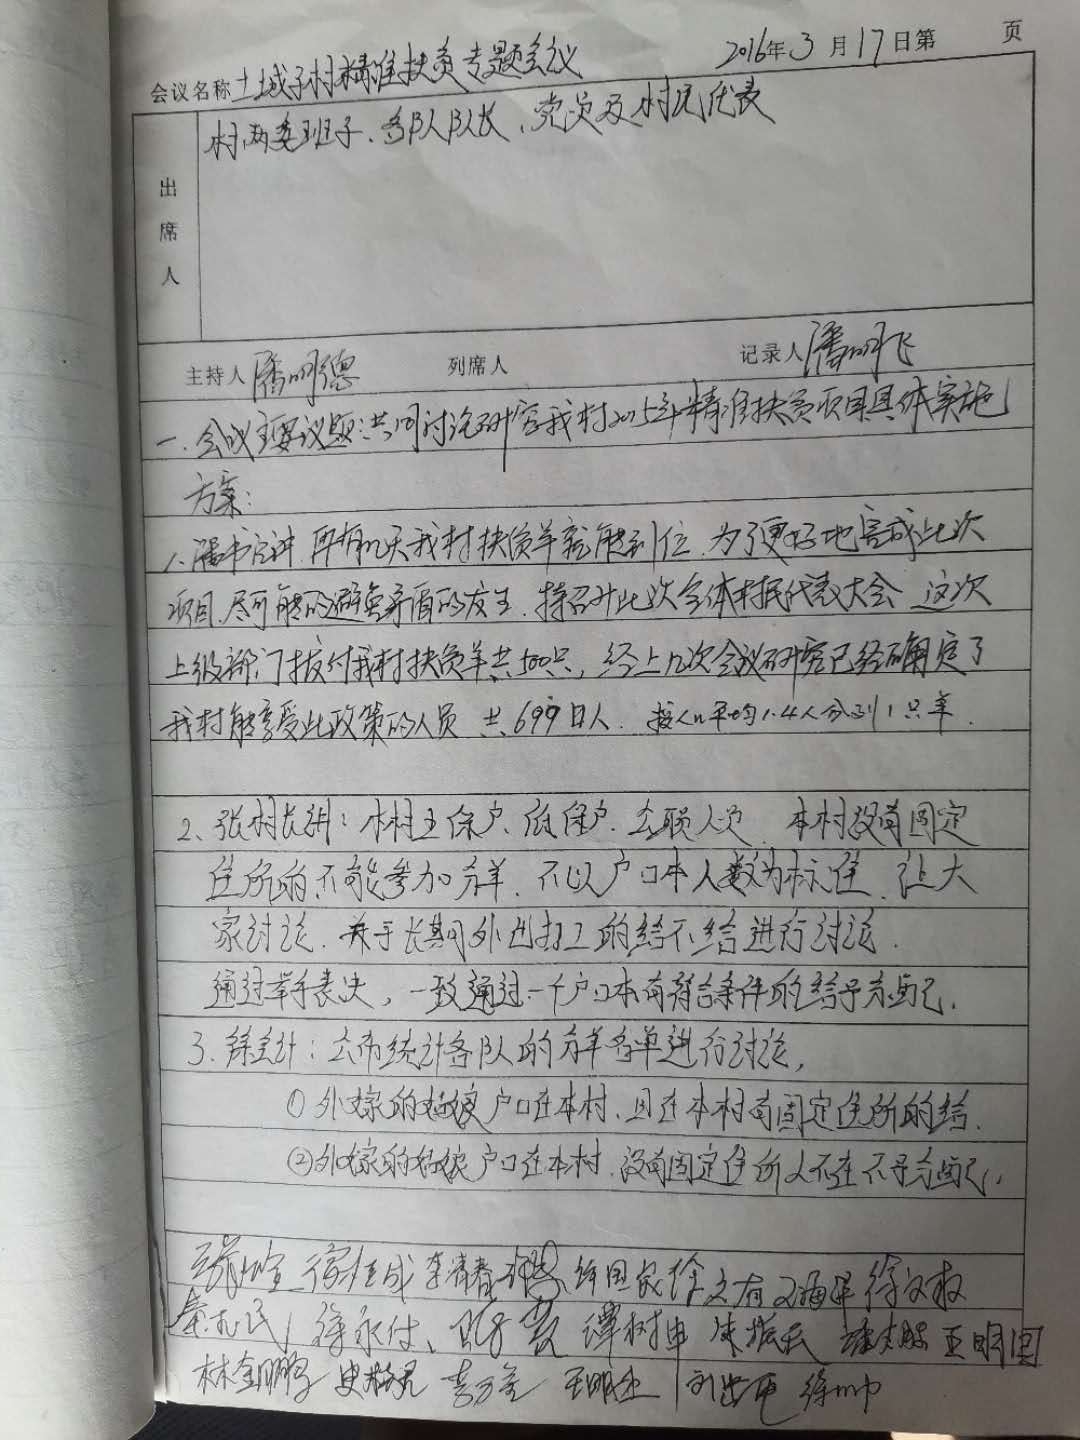 2016年3月17日第 页
会议名称 土城子村精准扶贫专题会议
村两委班子、各队队长、党员及村民代表
出席人
主持人 潘明德 列席人 记录人 潘明飞
一、会议主要议题：共同讨论研究我村2015年精准扶贫项目具体实施
方案：
1、潘书记讲 再有几天我村扶贫羊就能到位，为了更好地完成此次
项目，尽可能的避免矛盾的发生，特召开此次全体村民代表大会 这次
上级部门拨付我村扶贫羊共500只，经上几次会议研究已经确定了
我村能享受此政策的人员 共699口人. 按人口平均1.4人分到1只羊.
2、张村长讲：本村五保户、低保户、公职人员 本村没有固定
住所的不能参加分羊. 不以户口本人数为标准 让大
家讨论. 关于长期外出打工的给不给进行讨论.
通过举手表决，一致通过一个户口本有符合条件的给予分配.
3. 徐会计：公布统计各队的分羊名单进行讨论，
①外嫁的姑娘户口在本村，且在本村有固定住所的给.
②外嫁的姑娘户口在本村，没有固定住所人不在不予分配.
李清春 徐国家 徐文有 徐文权
秦志民 徐永付 谭树申 王明国
林金鹏 王明